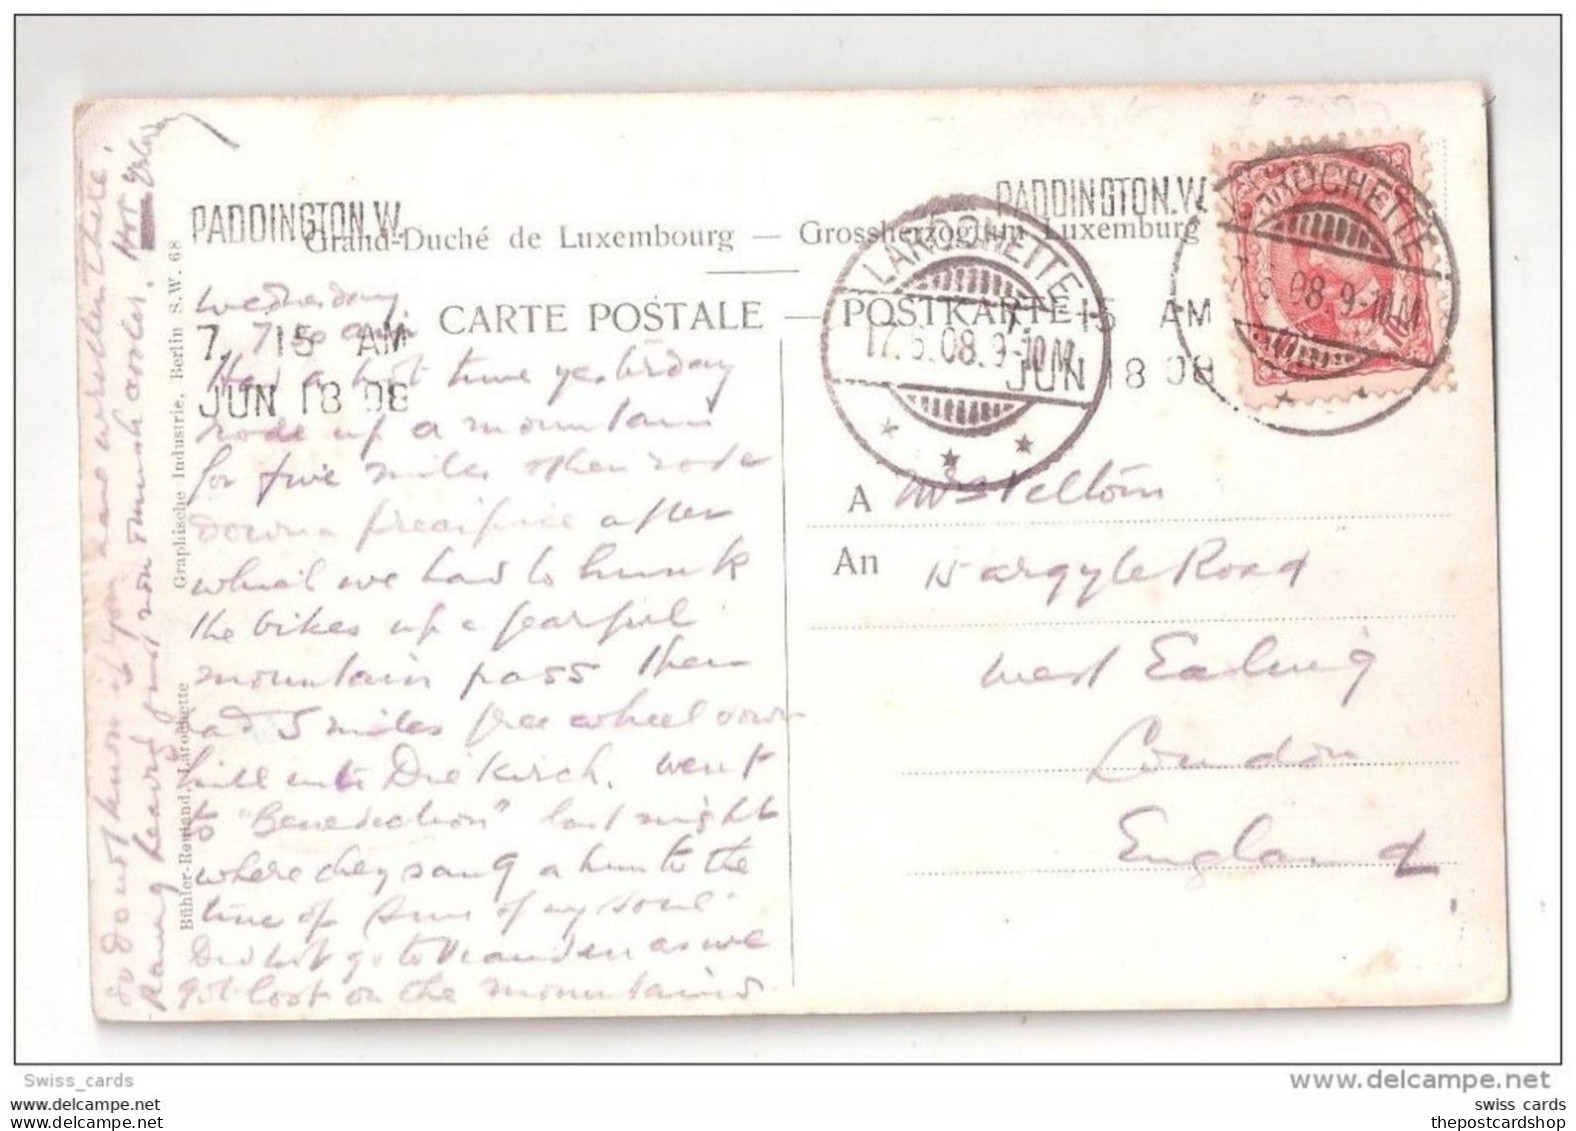 PADDINGTON.W.
7. 15 AM
JUN 18 08
PADDINGTON.W.
7. 15 AM
JUN 18 08
Grand-Duché de Luxembourg — Grossherzogtum Luxemburg
CARTE POSTALE — POSTKARTE
LAROCHETTE
17.6.08.9-10M
LAROCHETTE
17.6.08.9-10M
Wednesday
7.30 am
Had a hot time yesterday
rode up a mountain
for five miles then rode
down a precipice after
which we had to hunk
the bikes up a fearful
mountain pass then
had 5 miles free wheel down
hill into Diekirch. Went
to "Benediction" last night
where they sang a hym to the
tune of "Sun of my soul"
Did not go to Vianden as we
got lost on the mountains
so do not know if you have written there!
Raining heavy just now & much cooler.
A Mrs Peltom
An 15 argyle Road
West Ealing
London
England
Graphische Industrie, Berlin S.W. 68
Bühler-Romand, Larochette
Swiss_cards
www.delcampe.net
swiss cards
swiss cards
thepostcardshop
thepostcardshop